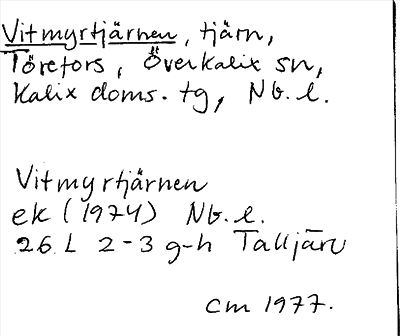 Vitmyrtjärnen, tjärn,
Törefors, Överkalix sn,
Kalix doms. tg, Nb. l.
Vitmyrtjärnen
ek (1974) Nb. l.
26 L 2-3 g-h Talljärv
cm 1977.